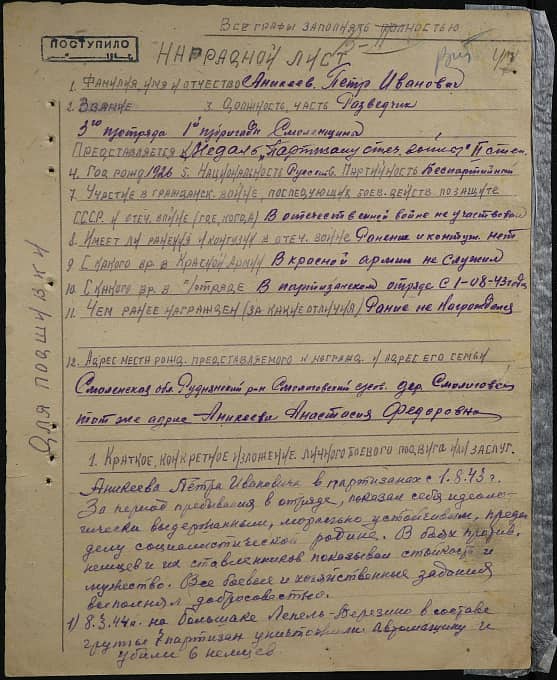 Все графы заполнять полностью
ПОСТУПИЛО
НАГРАДНОЙ ЛИСТ
1. Фамилия имя и отчество Аникеев Петр Иванович
2. Звание 3. Должность, часть Разведчик
3го п/отряда 1й п/бригады Смоленщина
Представляется к Медаль "партизану отеч. войны" II степ.
4. Год рожд 1926 5. Национальность Русский. Партийность Беспартийный
7. Участие в гражданск. войне, последующих боев. действ. по защите
СССР и отеч. войне (где, когда) В отечественной войне не участвовал
8. Имеет ли ранения и контузии в отеч. войне Ранение и контуз. нет
9 С какого вр. в Красной Армии В красной армии не служил
10. С какого вр. в п/отряде В партизанском отряде с 1-08-43 года
11. Чем ранее награжден (за какие отличия) Ранее не награждался
12. Адрес места рожд. представляемого к награжд. и адрес его семьи
Смоленская обл Руднянский р-он дер.
тот же адрес Аникеева Анастасия Федоровна
Для подшивки
1. Краткое, конкретное изложение личного боевого подвига или заслуг.
Аникеева Петра Ивановича в партизанах с 1.8.43 г.
За период пребывания в отряде, показал себя идеоло-
гически выдержанным, морально устойчивым, предан
делу социалистической родине. В боях против
немцев и их ставленников показывал стойкость и
мужество. Все боевые и хозяйственные задания
выполнял добросовестно.
1) 8.3.44г. на большаке Лепель-Березино в составе
группы партизан уничтожили автомашину и
убили 6 немцев.